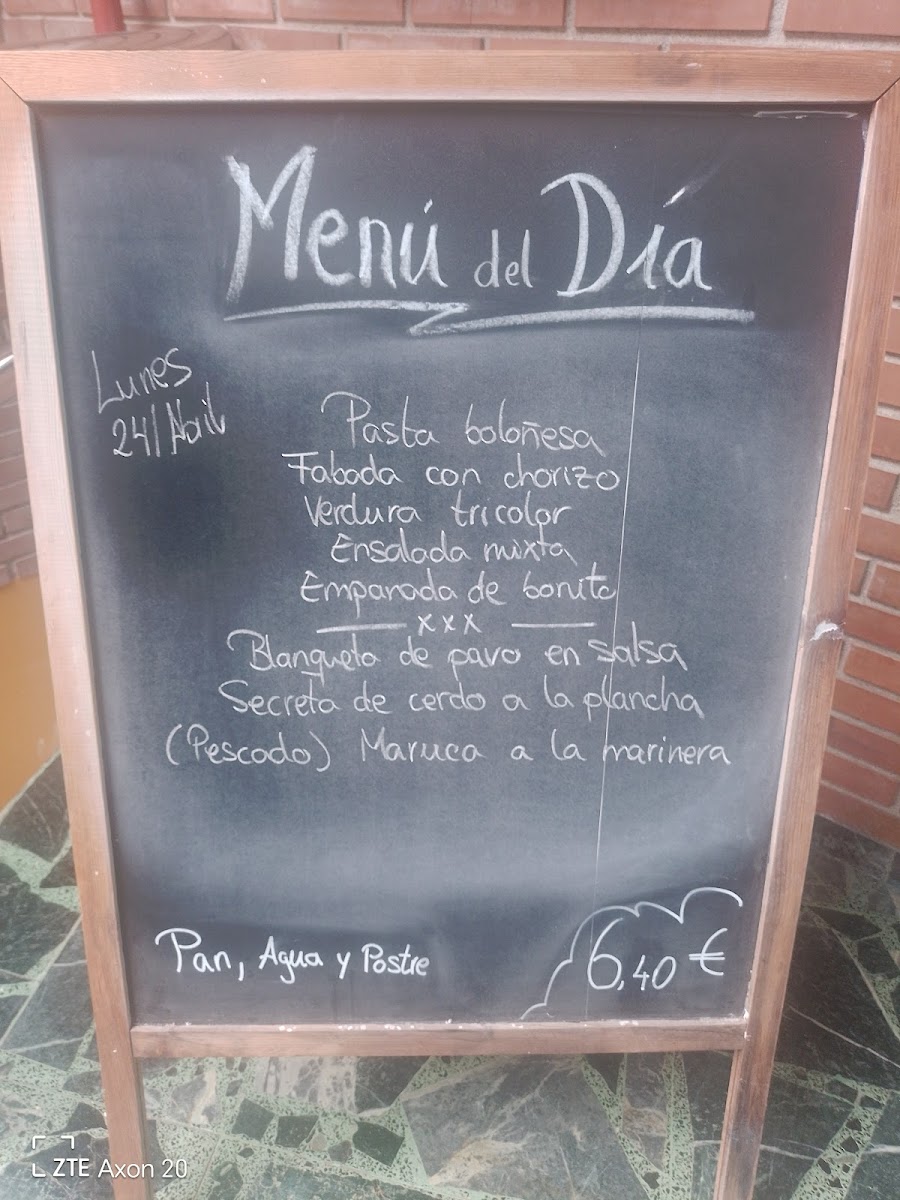 Menú del Día
Lunes
24/Abril
Pasta boloñesa
Fabada con chorizo
Verdura tricolor
Ensalada mixta
Empanada de bonito
xxx
Blanqueta de pavo en salsa
Secreto de cerdo a la plancha
(Pescado) Maruca a la marinera
Pan, Agua y Postre
6,40 €
ZTE Axon 20